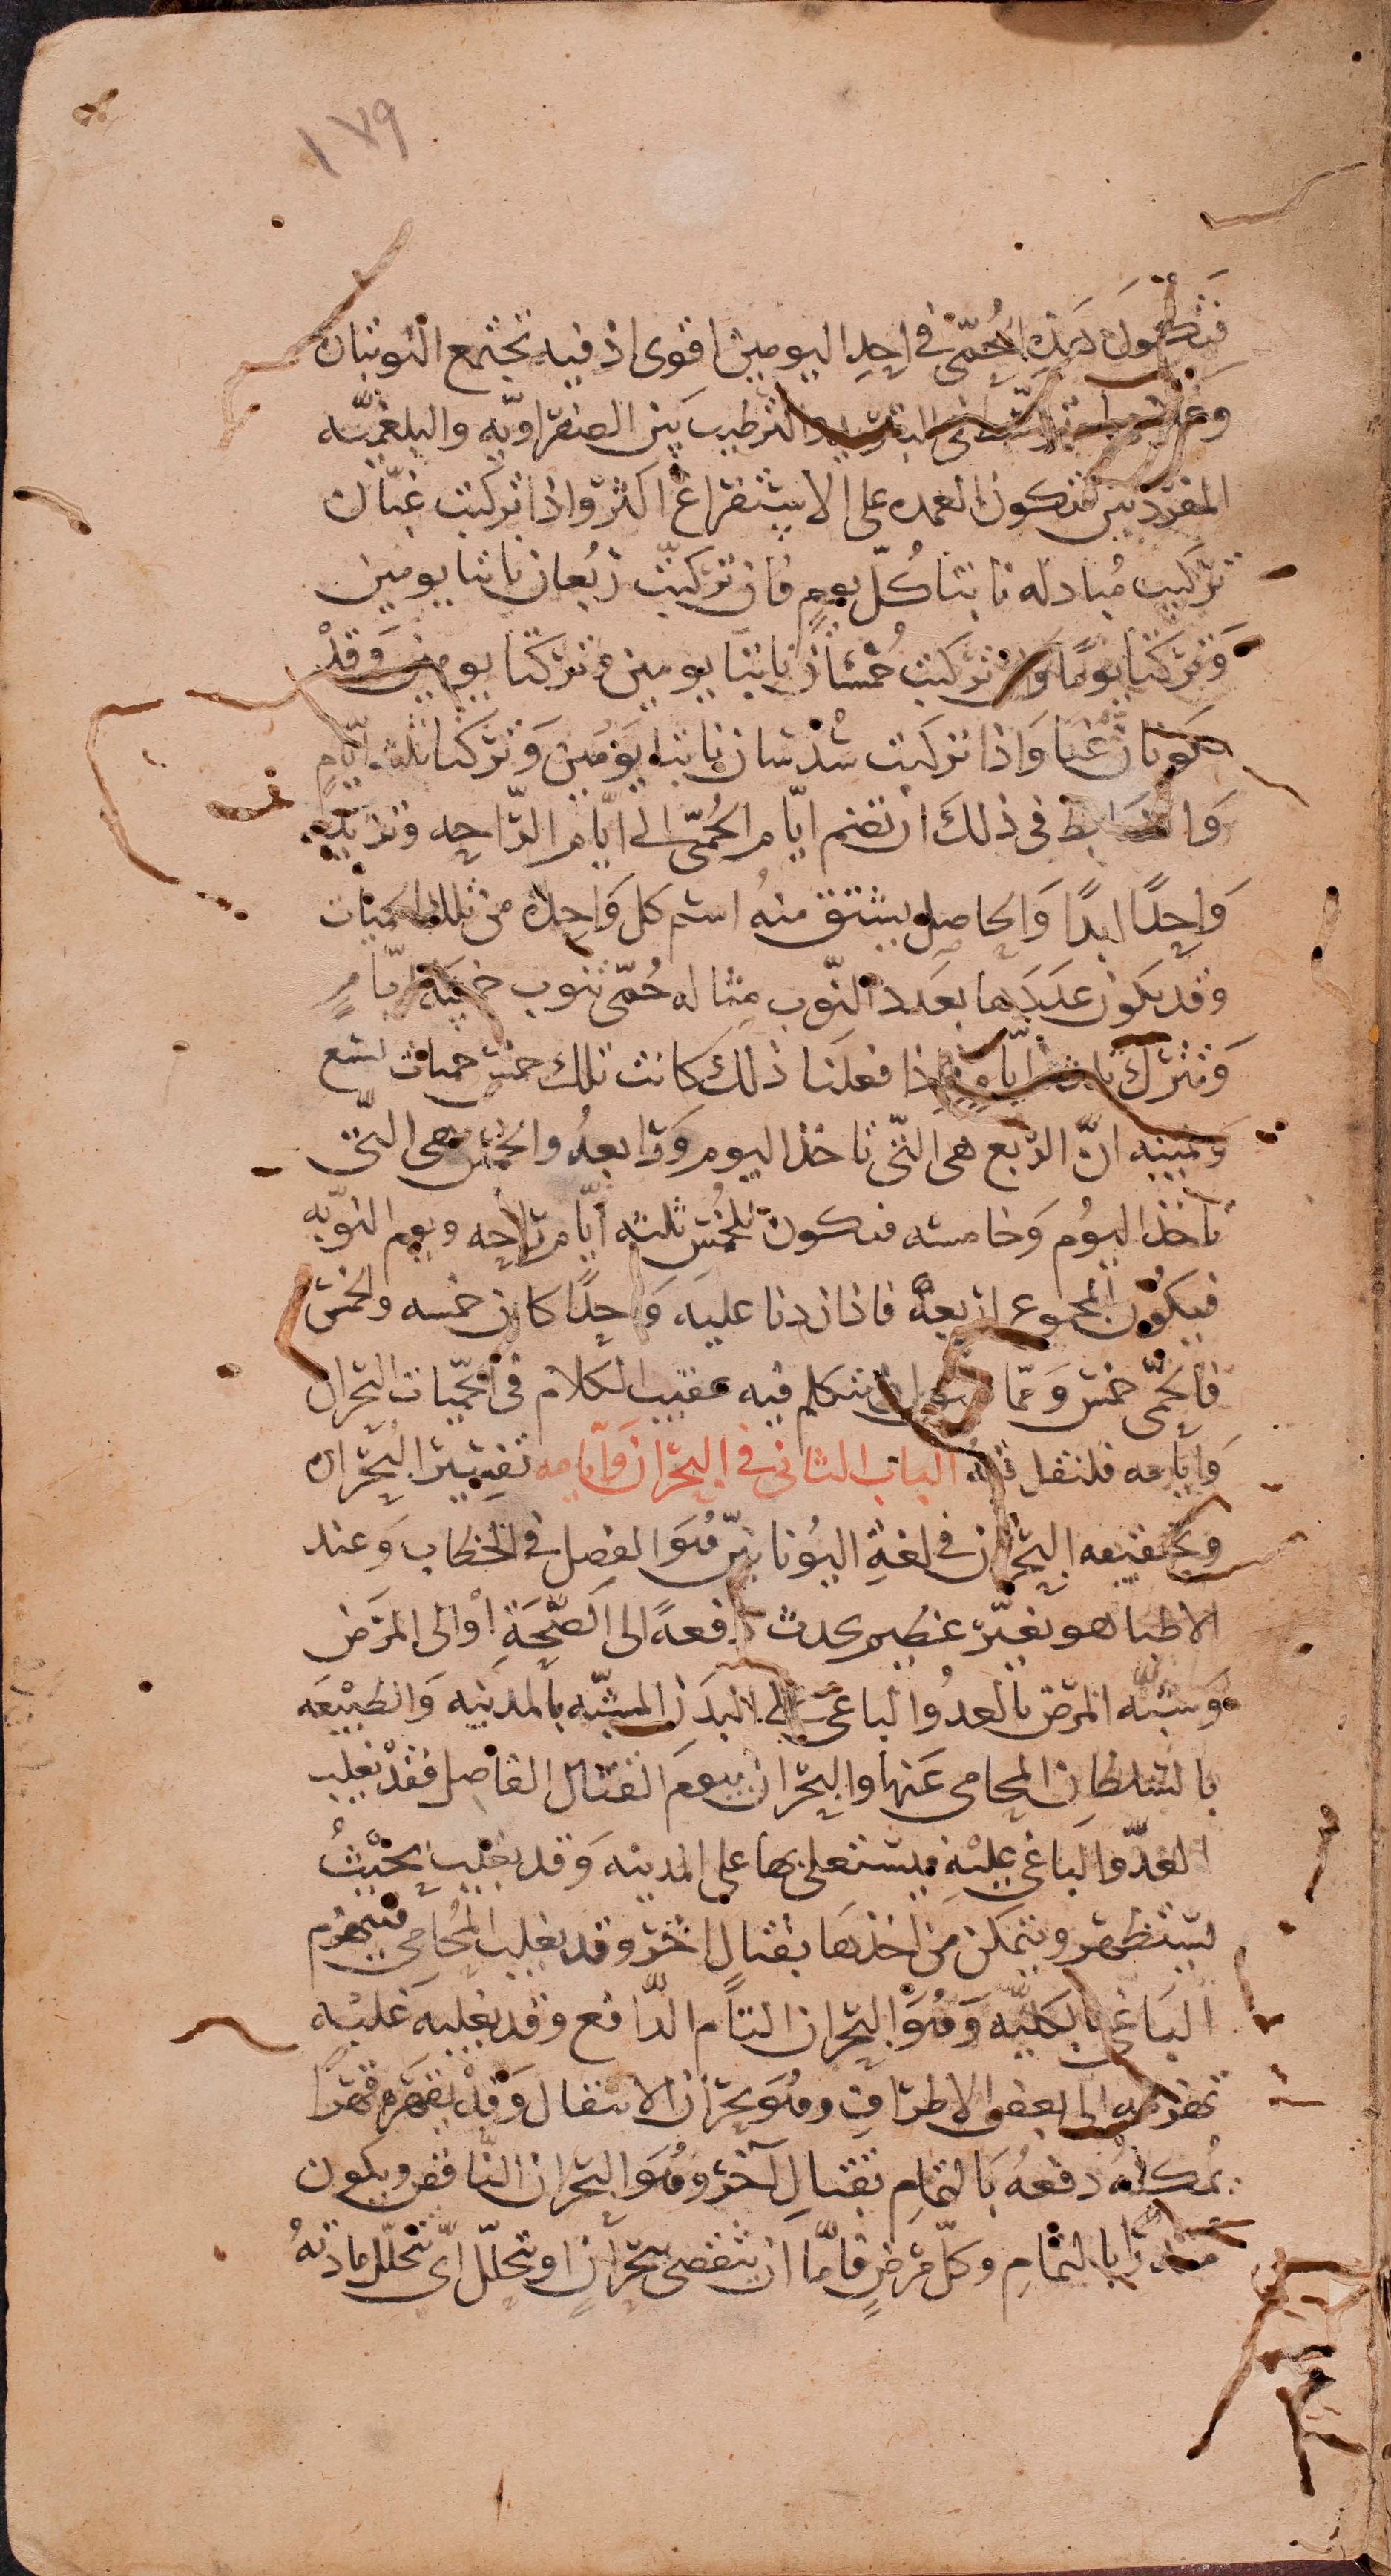 ١٧٩
فتكون هذه الحُمّى في احدِ اليومين اقوى اذ فيه تجتمع النوبتان
والترطيب بين الصفراويّه والبلغميّه
المفردتين فتكون العمده على الاستفراغ اكثر واذا تركبت غبّان
تركيب مُبادله نابتا كُلّ يومٍ فان تركبّت رُبعان نابتا يومين
وَتركتا يومًا وَان تركبت خُمْسَان نابتا يومين وتركتا يومين وَقدْ
يكونان غبّا وَاذا تركبت سُدْسان نابتا يَومَين وَتركتا ثلثه ايّامٍ
وَالضابط في ذلكَ ان تضم ايّام الحُمّى الى ايّام الرّاحه وتزيد
وَاحِدًا ابدًا وَالحاصل يشتق منهُ اسم كل وَاحِدة من تلك الحميات
وقد يكون عددها بعَدد النّوب مثاله حُمّى تنوب خمسة ايّامٍ
وَتترك ثلاثة ايّامٍ فاذا فعلنا ذلك كانت تلك خمس حميات تسع
انّ الرّبع هى التّى تاخذ اليوم وَرَابعهُ والخمس هى التّى
تاخذ اليَوُم وَخامسته فتكون للخُمس ثلثه ايّام رَاحه ويوم النوبّه
فيكوُن المجموع اربعهً فاذا زدنا عليه وَاحِدًا كان خمسه والخمس
فالحمّى خمس وَممّا ان نتكلم فيه عقيب الكلام فى الحُمّيات البحران
وَايّامه فلنقل فيه الباب الثانى فى البحران وَايّامه تفسير البُحران
وتحقيقه البُحران فى لغةِ اليُونانيّين هُوَ الفصل فى الخطاب وَعند
الاطبا هو تغيّر عظيم يحدث دفعةً الى الصّحَةِ اوْ الى المرَض
وَشبّه المرَض بالعدوُ الباغىّ الى البدَن المشبّه بالمدينه وَالطبيْعَه
بالسّلطان المحامى عَنها والبحران بيومَ القتال الفاصل فقدْ يغلب
العدّو الباغى عليْهِ فيستعلى بها على المدينه وَقد يغلب بحَيْثُ
يستظهر ويتمكن من اخذهَا بقتالٍ اخر وقد يغلب المُحامى فينهزم
البَاغى بالكليّه وَهُوَ البحران التام الدّافع وقد يغلبه غلبْه
تهزمه الى بعض الاطرَافِ وهُوَ بحرَان الانتقال وَقدْ يقهَره قهرًا
يُمكنهُ دفعهُ بَالتمامِ بقتالٍ آخر وهُوَ البحران النّاقص ويكون
منذرًا بالتمامِ وكلّ مرَضٍ فامّا ان ينقضى ببحرَانٍ او بتحلّل اىّ تتحلّل مادتهُ